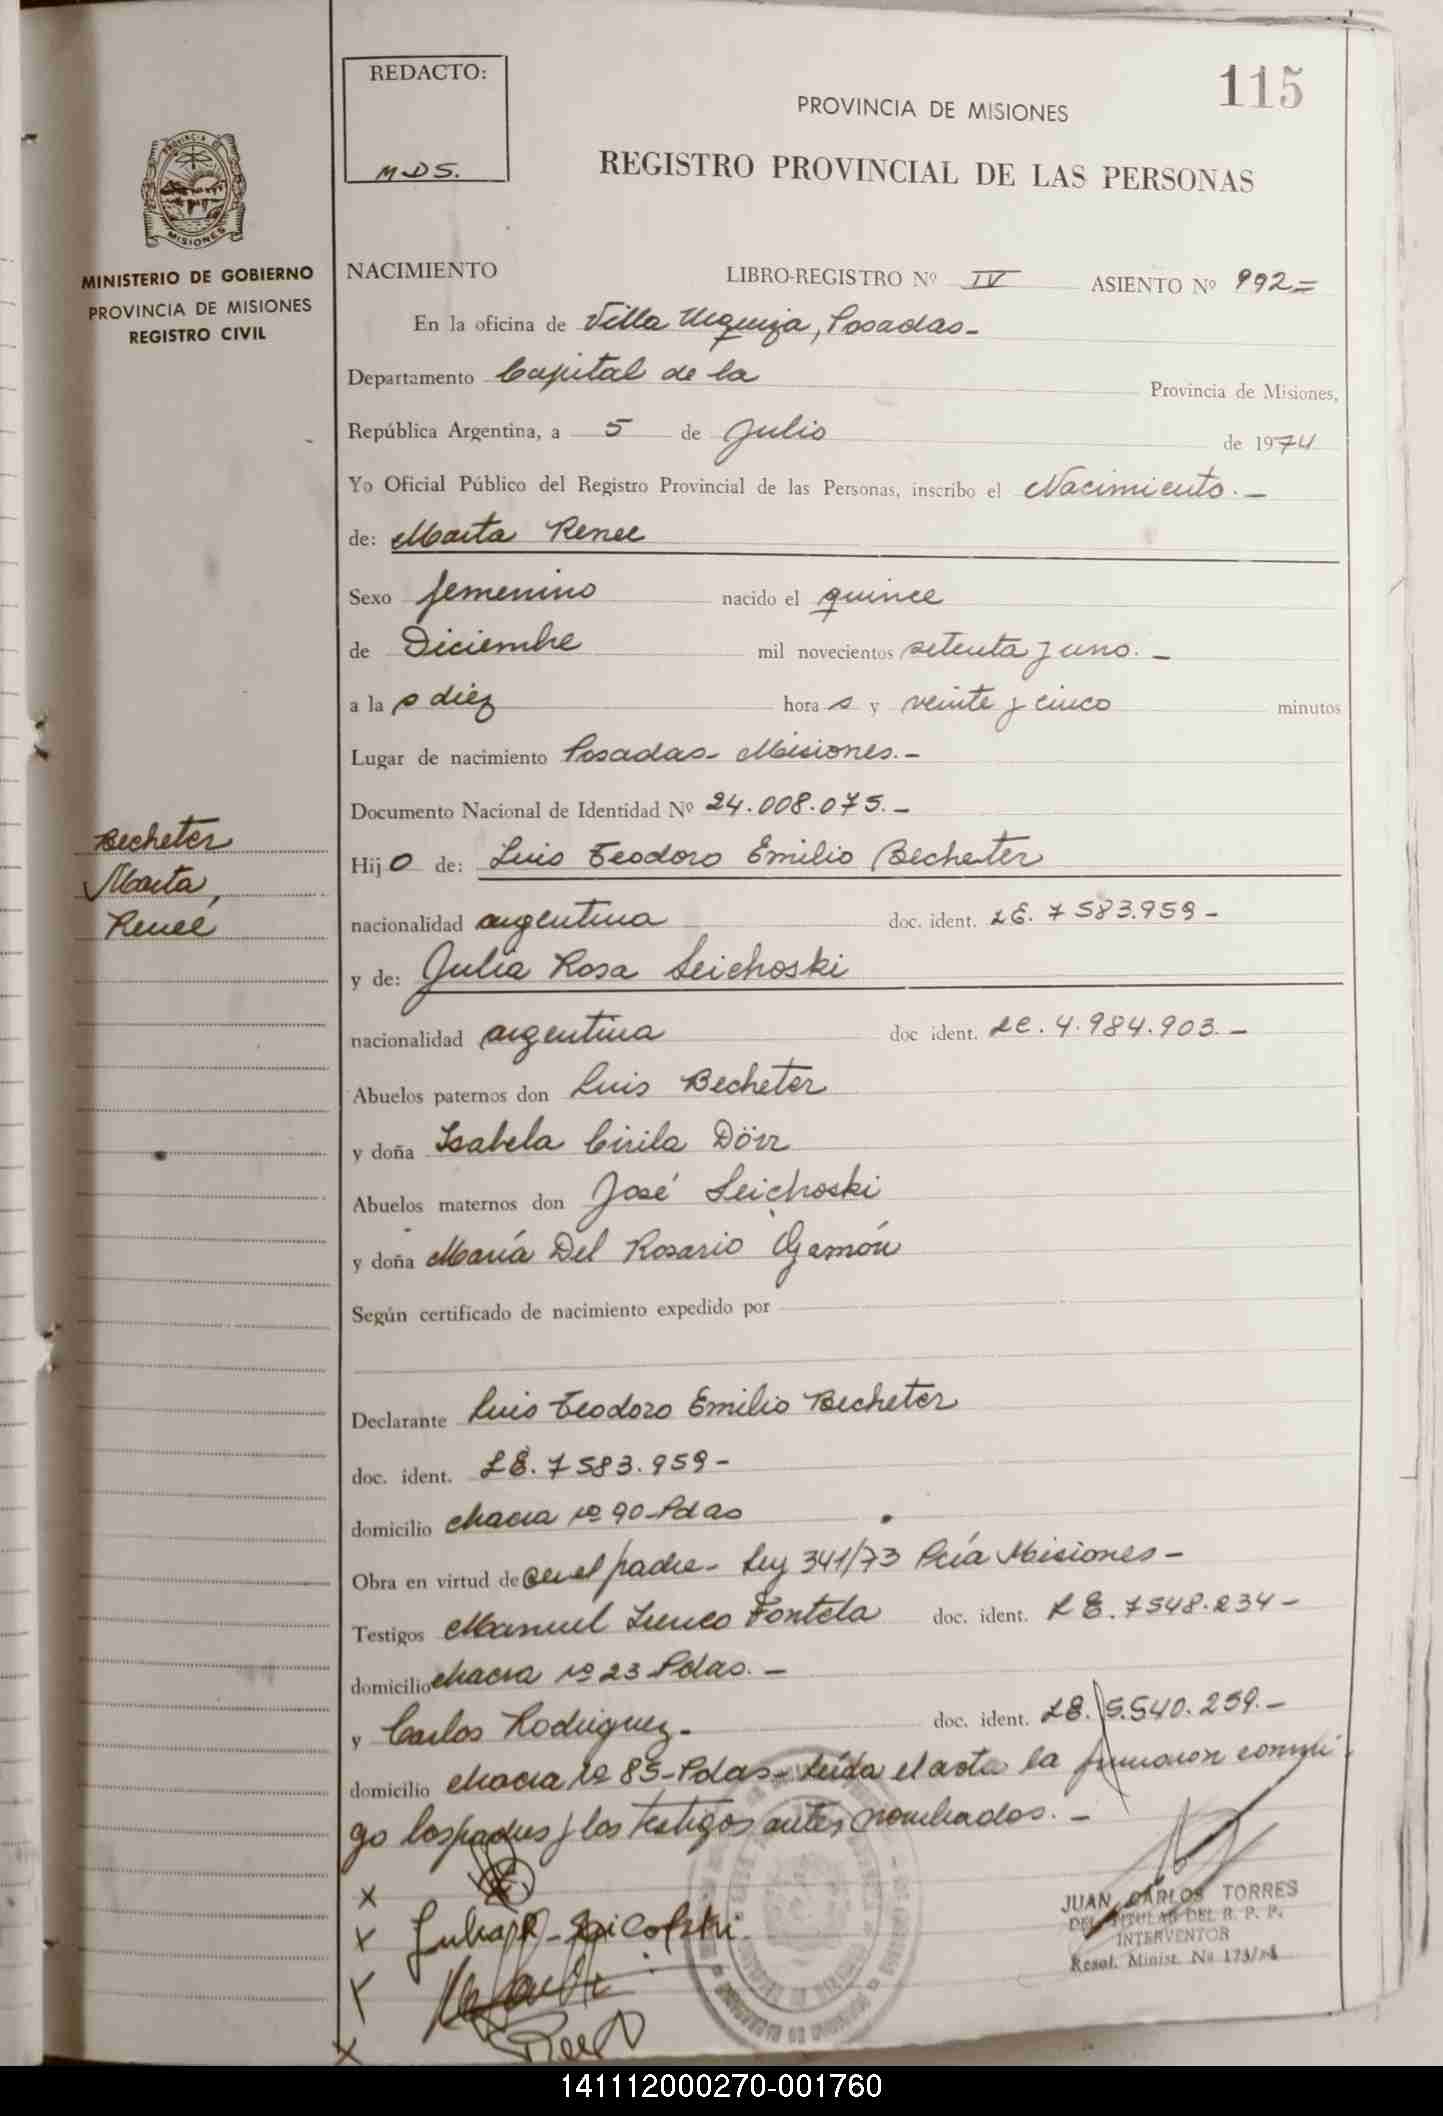 REDACTO:
M-DS.
115
PROVINCIA DE MISIONES
REGISTRO PROVINCIAL DE LAS PERSONAS
MISIONES
MINISTERIO DE GOBIERNO
PROVINCIA DE MISIONES
REGISTRO CIVIL
NACIMIENTO LIBRO-REGISTRO Nº IV ASIENTO Nº 992=
En la oficina de Villa Urquiza, Posadas-
Departamento Capital de la Provincia de Misiones,
República Argentina, a 5 de Julio de 1974
Yo Oficial Público del Registro Provincial de las Personas, inscribo el Nacimiento.-
de: Marta Renee
Sexo femenino nacido el quince
de Diciembre mil novecientos setenta y uno.-
a la s diez hora s y veinte y cinco minutos
Lugar de nacimiento Posadas- Misiones.-
Documento Nacional de Identidad Nº 24.008.075.-
Becheter
Marta,
Reneé
Hij o de: Luis Teodoro Emilio Becheter
nacionalidad argentina doc. ident. LE. 7583.959-
y de: Julia Rosa Leichoski
nacionalidad argentina doc ident. LC. 4.984.903.-
Abuelos paternos don Luis Becheter
y doña Isabela Cirila Dörr
Abuelos maternos don José Leichoski
y doña María Del Rosario Gamón
Según certificado de nacimiento expedido por
Declarante Luis Teodoro Emilio Becheter
doc. ident. LE. 7583.959-
domicilio chacra nº 90-Pdas
Obra en virtud de ser el padre- Ley 341/73 Pcía Misiones-
Testigos Manuel Fontela doc. ident. LE. 7548.234-
domicilio chacra nº 23 Pdas.-
y Carlos Rodriguez- doc. ident. LE. 5.540.259.-
domicilio chacra nº 85-Pdas- Leída el acta la firmaron conmi
go los padres y los testigos antes nombrados.-
JUAN CARLOS TORRES
DEL. TITULAR DEL R. P. P.
INTERVENTOR
Resol. Minist. Nº 173/74
141112000270-001760